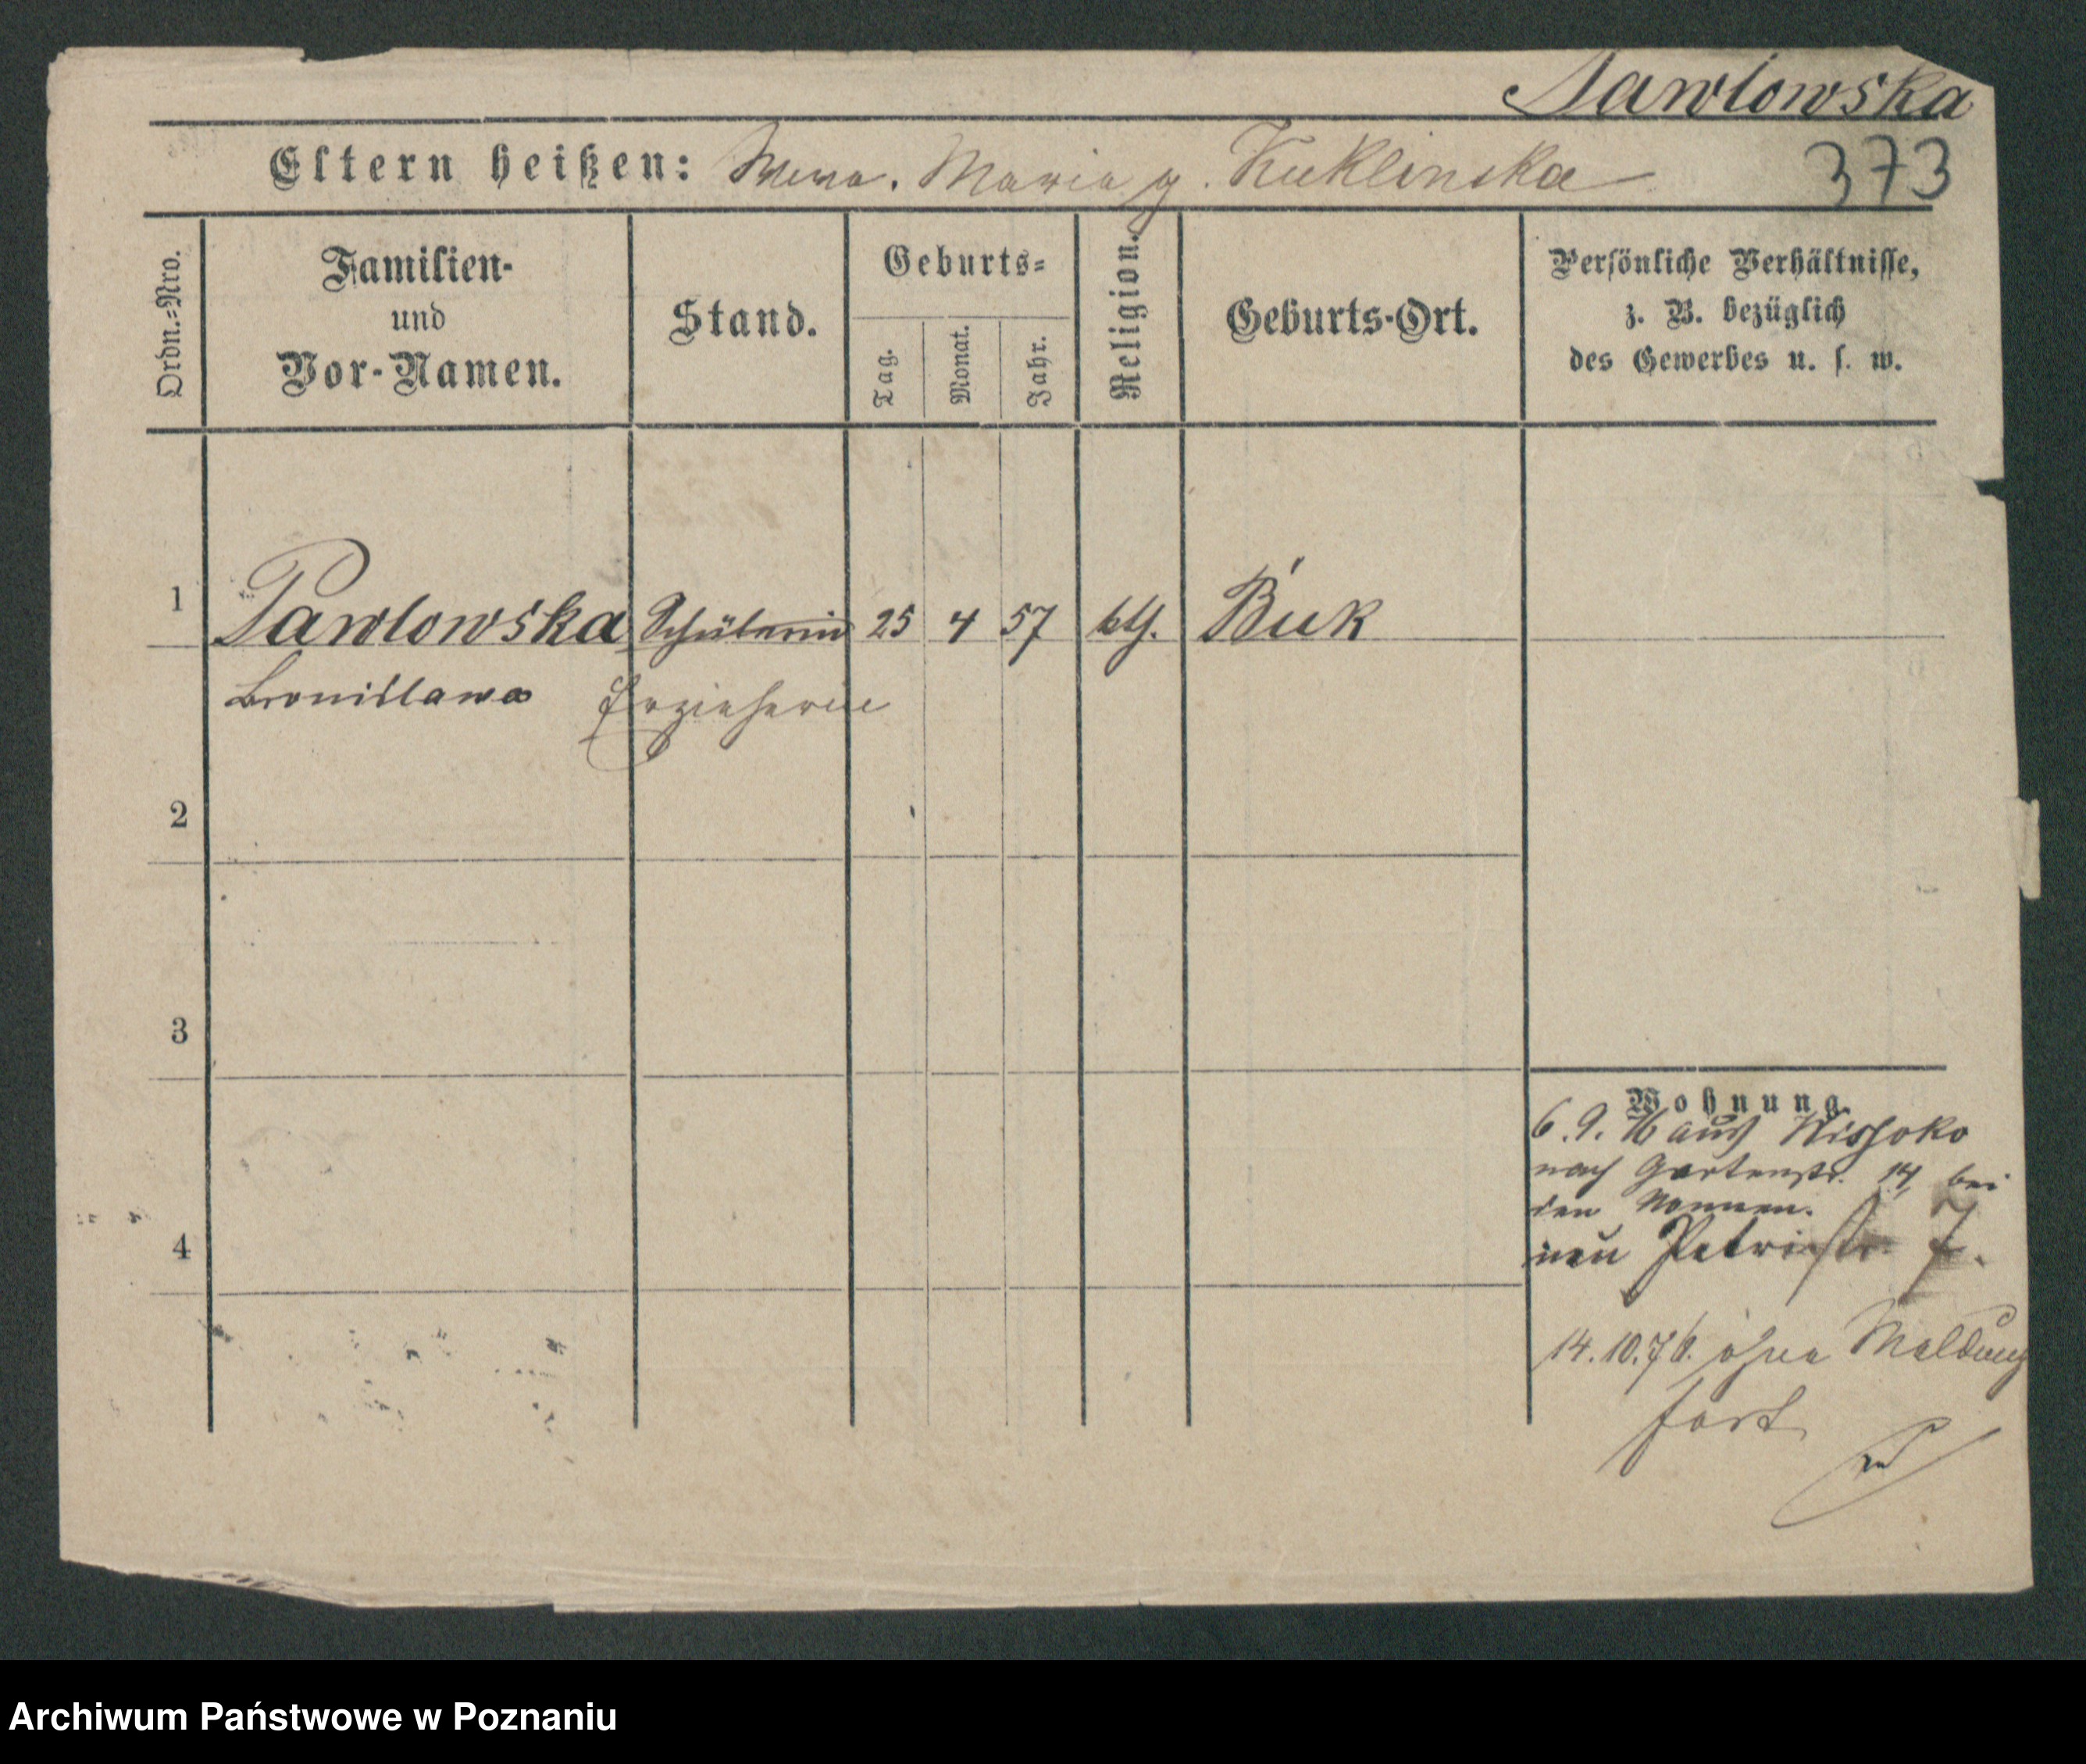 Pawlowska
Eltern heißen: Maria g. Kuklinska
373
Ordn.=Nro.
Familien-
und
Vor-Namen.
Stand.
Geburts=
Tag.
Monat.
Jahr.
Religion.
Geburts-Ort.
Persönliche Verhältnisse,
z. B. bezüglich
des Gewerbes u. s. w.
1 Pawlowska Schülerin 25 4 57 kth. Buk
Bronislawa Erzieherin
2
3
4
Wohnung.
6. 9. 76 aus
nach Gartenstr. 14, bei
den Nonnen.
neu Petristr. 7.
14.10.76. ohne Meldung
fort
Archiwum Państwowe w Poznaniu